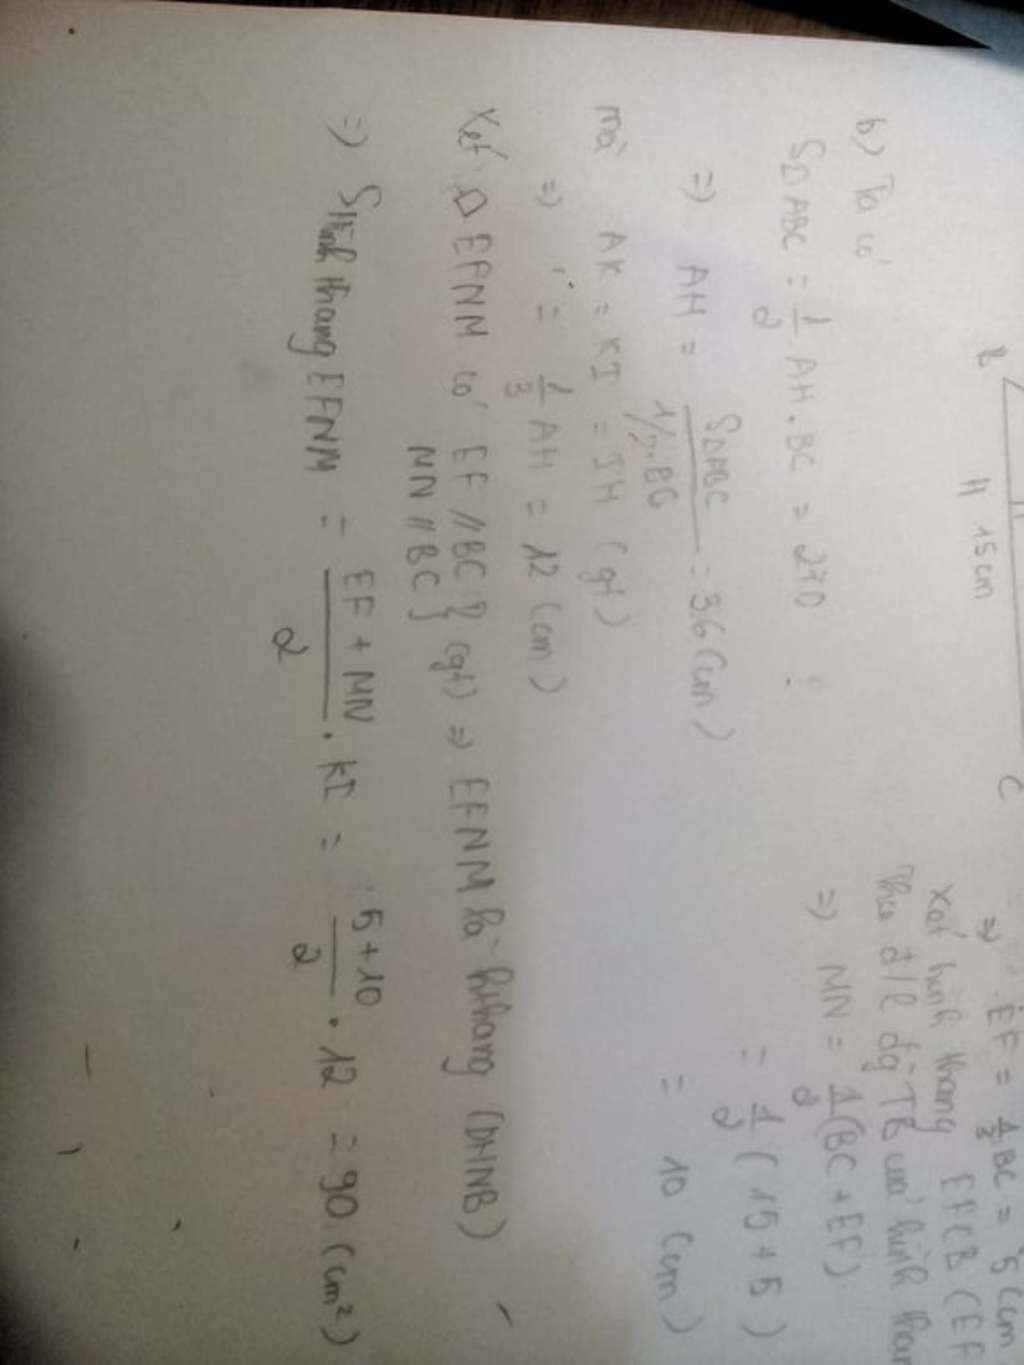 B H 15cm C
=> EF = 1/3 BC = 5 (cm
Xét hình thang EFCB (EF
Theo đ/l đg TB của hình than
=> MN = 1/2 (BC + EF)
= 1/2 (15 + 5)
= 10 (cm)
b) Ta có
S△ABC = 1/2 AH . BC = 270
=> AH = S△ABC / 1/2.BC = 36 (cm)
mà AK = KI = IH (gt)
=> = 1/3 AH = 12 (cm)
Xét EFNM có EF // BC } (gt) => EFNM là hthang (DHNB)
MN // BC }
=> S hình thang EFNM = EF + MN / 2 . KI = 5+10 / 2 . 12 = 90 (cm²)